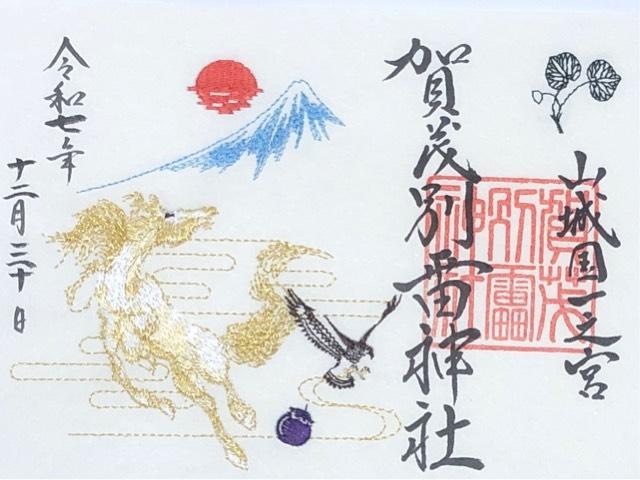 山城国一之宮
賀茂別雷神社
賀茂別雷神社
令和七年
十二月三十日